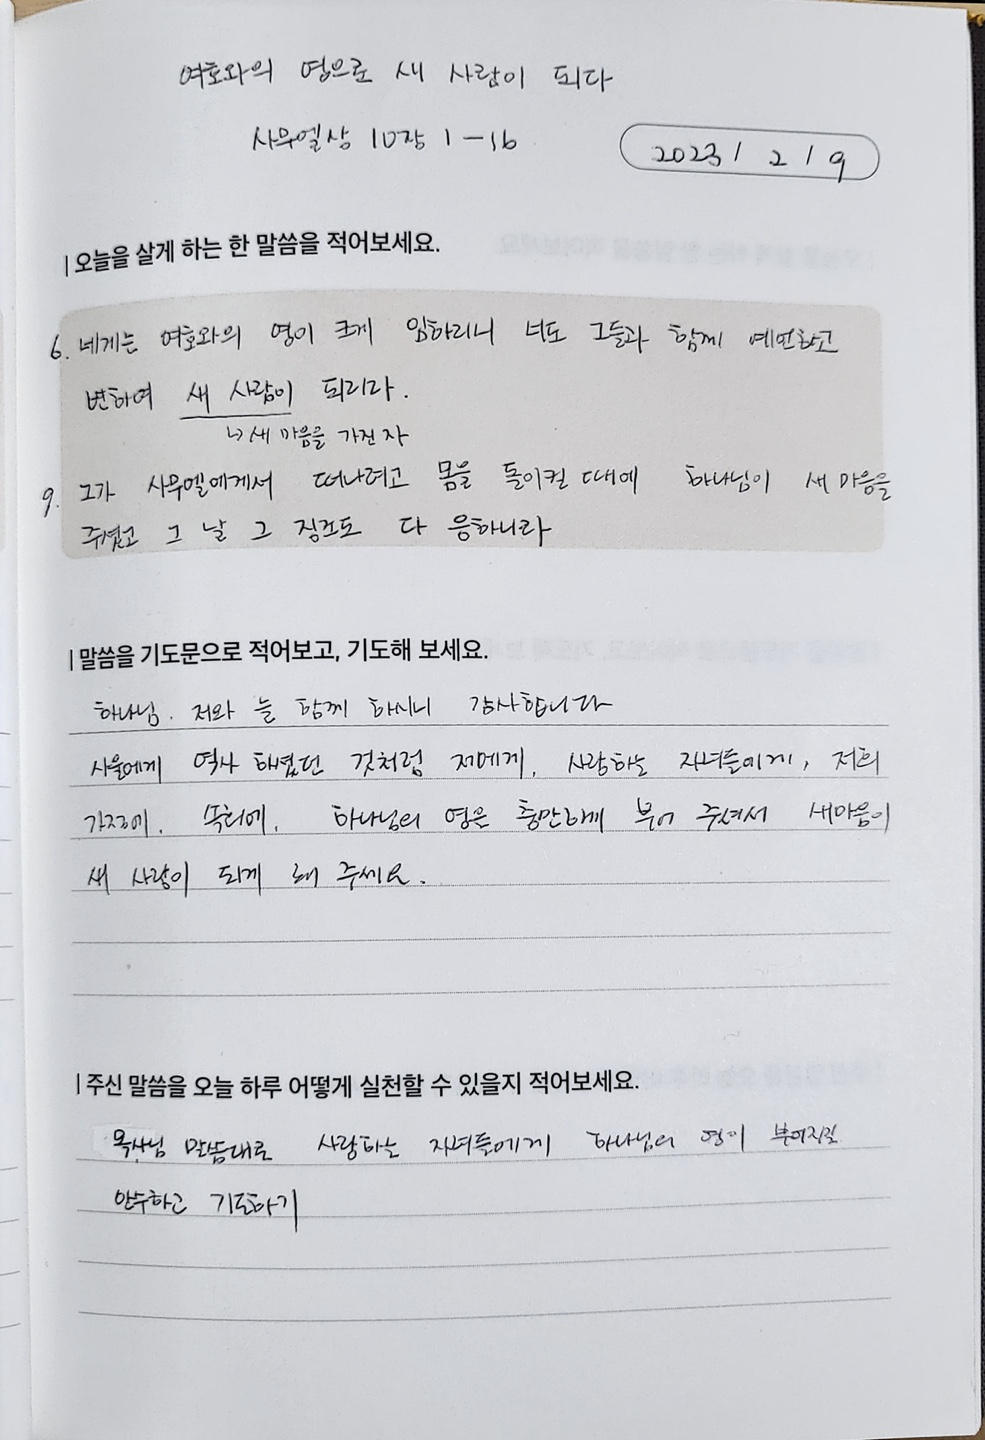 여호와의 영으로 새 사람이 되다
사무엘상 10장 1-16
2023 / 2 / 9
오늘을 살게 하는 한 말씀을 적어보세요.
6. 네게는 여호와의 영이 크게 임하리니 너도 그들과 함께 예언하고
변하여 새 사람이 되리라.
↳ 새 마음을 가진 자
9. 그가 사무엘에게서 떠나려고 몸을 돌이킬 때에 하나님이 새 마음을
주셨고 그 날 그 징조도 다 응하니라
말씀을 기도문으로 적어보고, 기도해 보세요.
하나님. 저와 늘 함께 하시니 감사합니다
사울에게 역사 하셨던 것처럼 저에게, 사랑하는 자녀들에게, 저희
가정에, 속리에, 하나님의 영을 충만하게 부어 주셔서 새마음이
새 사람이 되게 해 주세요.
주신 말씀을 오늘 하루 어떻게 실천할 수 있을지 적어보세요.
목사님 말씀대로 사랑하는 자녀들에게 하나님의 영이 부어지길
안수하고 기도하기